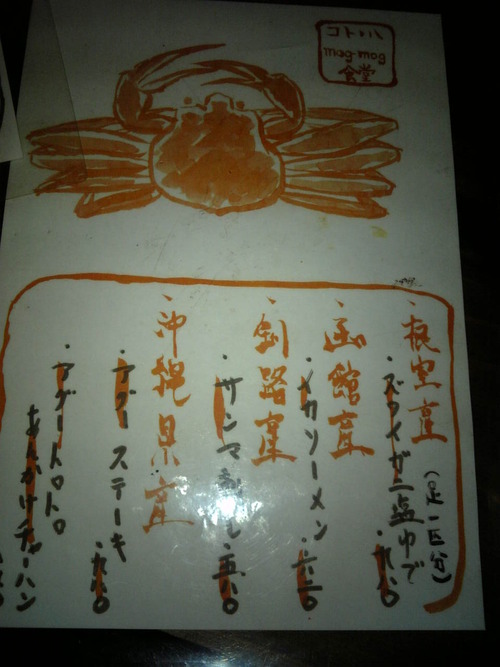 コトハ
mog-mog
食堂
・根室産
・ズワイガニ塩ゆで
(足一匹分)
・九八〇
・函館産
・イカソーメン・六二〇
・釧路産
・サンマ刺し・五八〇
・沖縄県産
・アグーステーキ・九八〇
・アグートロトロ
あんかけチャーハン